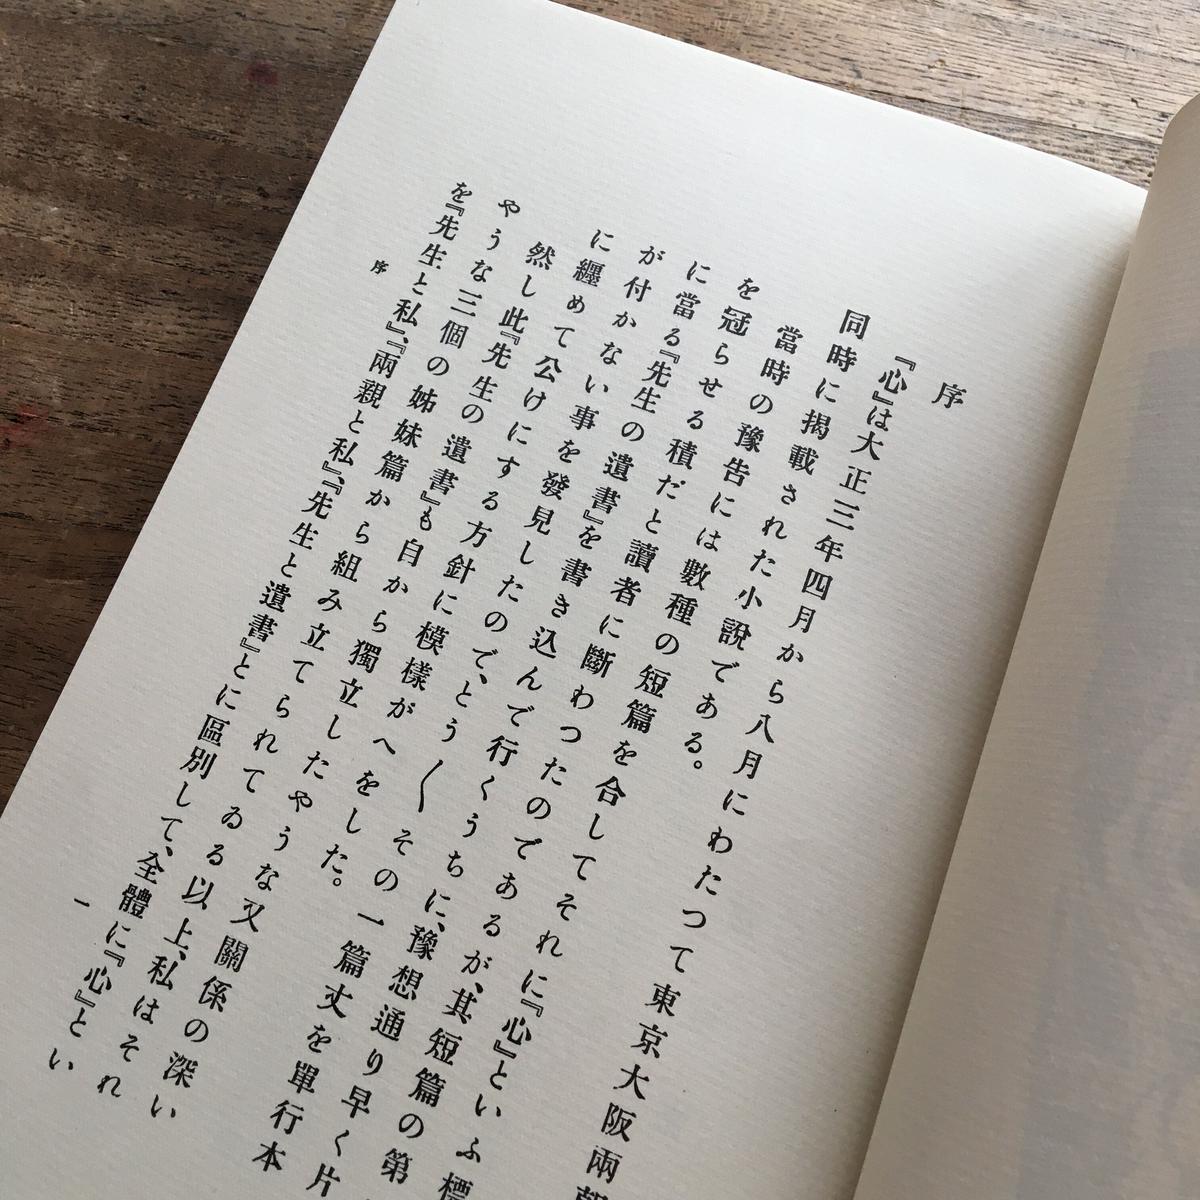 序
『心』は大正三年四月から八月にわたつて東京大阪兩
同時に揭載された小說である。
當時の豫告には數種の短篇を合してそれに『心』といふ標
を冠らせる積だと讀者に斷わつたのであるが、其短篇の第
に當る『先生の遺書』を書き込んで行くうちに、豫想通り早く片
が付かない事を發見したので、とう〱その一篇丈を單行本
に纒めて公けにする方針に模樣がへをした。
然し此『先生の遺書』も自から獨立したやうな又關係の深い
やうな三個の姉妹篇から組み立てられてゐる以上、私はそれ
を『先生と私』、『兩親と私』、『先生と遺書』とに區別して、全體に『心』とい
序
一